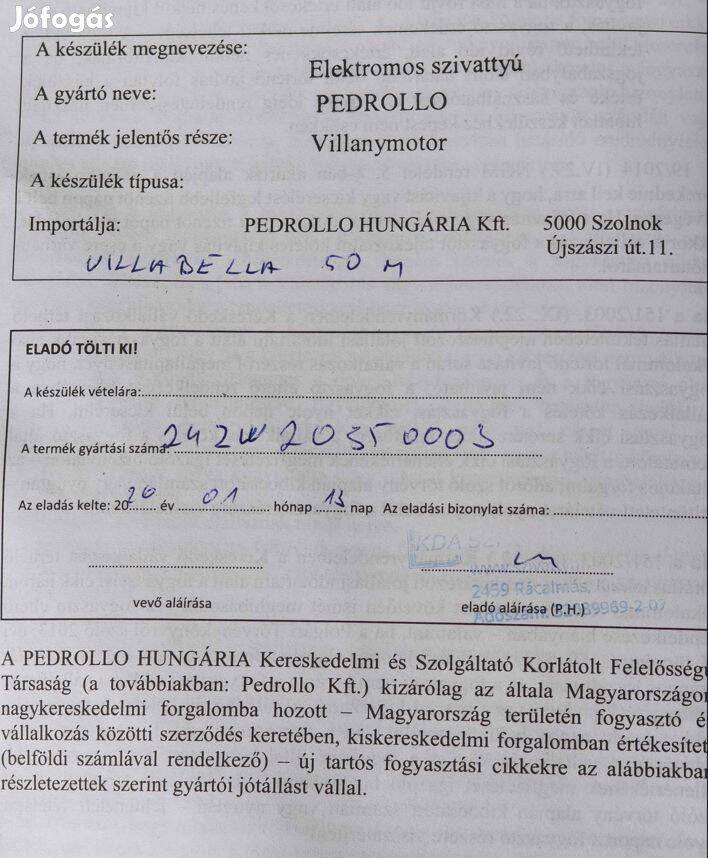 Jófogás
A készülék megnevezése: Elektromos szivattyú
A gyártó neve: PEDROLLO
A termék jelentős része: Villanymotor
A készülék típusa:
Importálja: PEDROLLO HUNGÁRIA Kft. 5000 Szolnok
Újszászi út.11.
VILLABELLA 50 M
ELADÓ TÖLTI KI!
A készülék vételára:
A termék gyártási száma: 242W20350003
Az eladás kelte: 2020 év 01 hónap 13 nap Az eladási bizonylat száma:
KDA
2459 Rácalmás,
vevő aláírása eladó aláírása (P.H.)
Adószám:
A PEDROLLO HUNGÁRIA Kereskedelmi és Szolgáltató Korlátolt Felelősségű
Társaság (a továbbiakban: Pedrollo Kft.) kizárólag az általa Magyarországon
nagykereskedelmi forgalomba hozott – Magyarország területén fogyasztó é
vállalkozás közötti szerződés keretében, kiskereskedelmi forgalomban értékesítet
(belföldi számlával rendelkező) – új tartós fogyasztási cikkekre az alábbiakban
részletezettek szerint gyártói jótállást vállal.